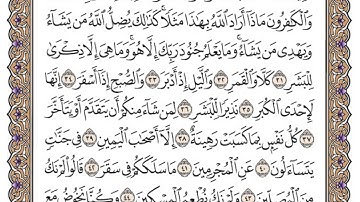 وَٱلۡكَٰفِرُونَ مَاذَآ أَرَادَ ٱللَّهُ بِهَٰذَا مَثَلٗاۚ كَذَٰلِكَ يُضِلُّ ٱللَّهُ مَن يَشَآءُ
وَيَهۡدِي مَن يَشَآءُۚ وَمَا يَعۡلَمُ جُنُودَ رَبِّكَ إِلَّا هُوَۚ وَمَا هِيَ إِلَّا ذِكۡرَىٰ
لِلۡبَشَرِ ٣١ كَلَّا وَٱلۡقَمَرِ ٣٢ وَٱلَّيۡلِ إِذۡ أَدۡبَرَ ٣٣ وَٱلصُّبۡحِ إِذَآ أَسۡفَرَ ٣٤ إِنَّهَا
لَإِحۡدَى ٱلۡكُبَرِ ٣٥ نَذِيرٗا لِّلۡبَشَرِ ٣٦ لِمَن شَآءَ مِنكُمۡ أَن يَتَقَدَّمَ أَوۡ يَتَأَخَّرَ
٣٧ كُلُّ نَفۡسِۭ بِمَا كَسَبَتۡ رَهِينَةٌ ٣٨ إِلَّآ أَصۡحَٰبَ ٱلۡيَمِينِ ٣٩ فِي جَنَّٰتٖ
يَتَسَآءَلُونَ ٤٠ عَنِ ٱلۡمُجۡرِمِينَ ٤١ مَا سَلَكَكُمۡ فِي سَقَرَ ٤٢ قَالُواْ لَمۡ نَكُ
مِنَ ٱلۡمُصَلِّينَ ٤٣ وَلَمۡ نَكُ نُطۡعِمُ ٱلۡمِسۡكِينَ ٤٤ وَكُنَّا نَخُوضُ مَعَ